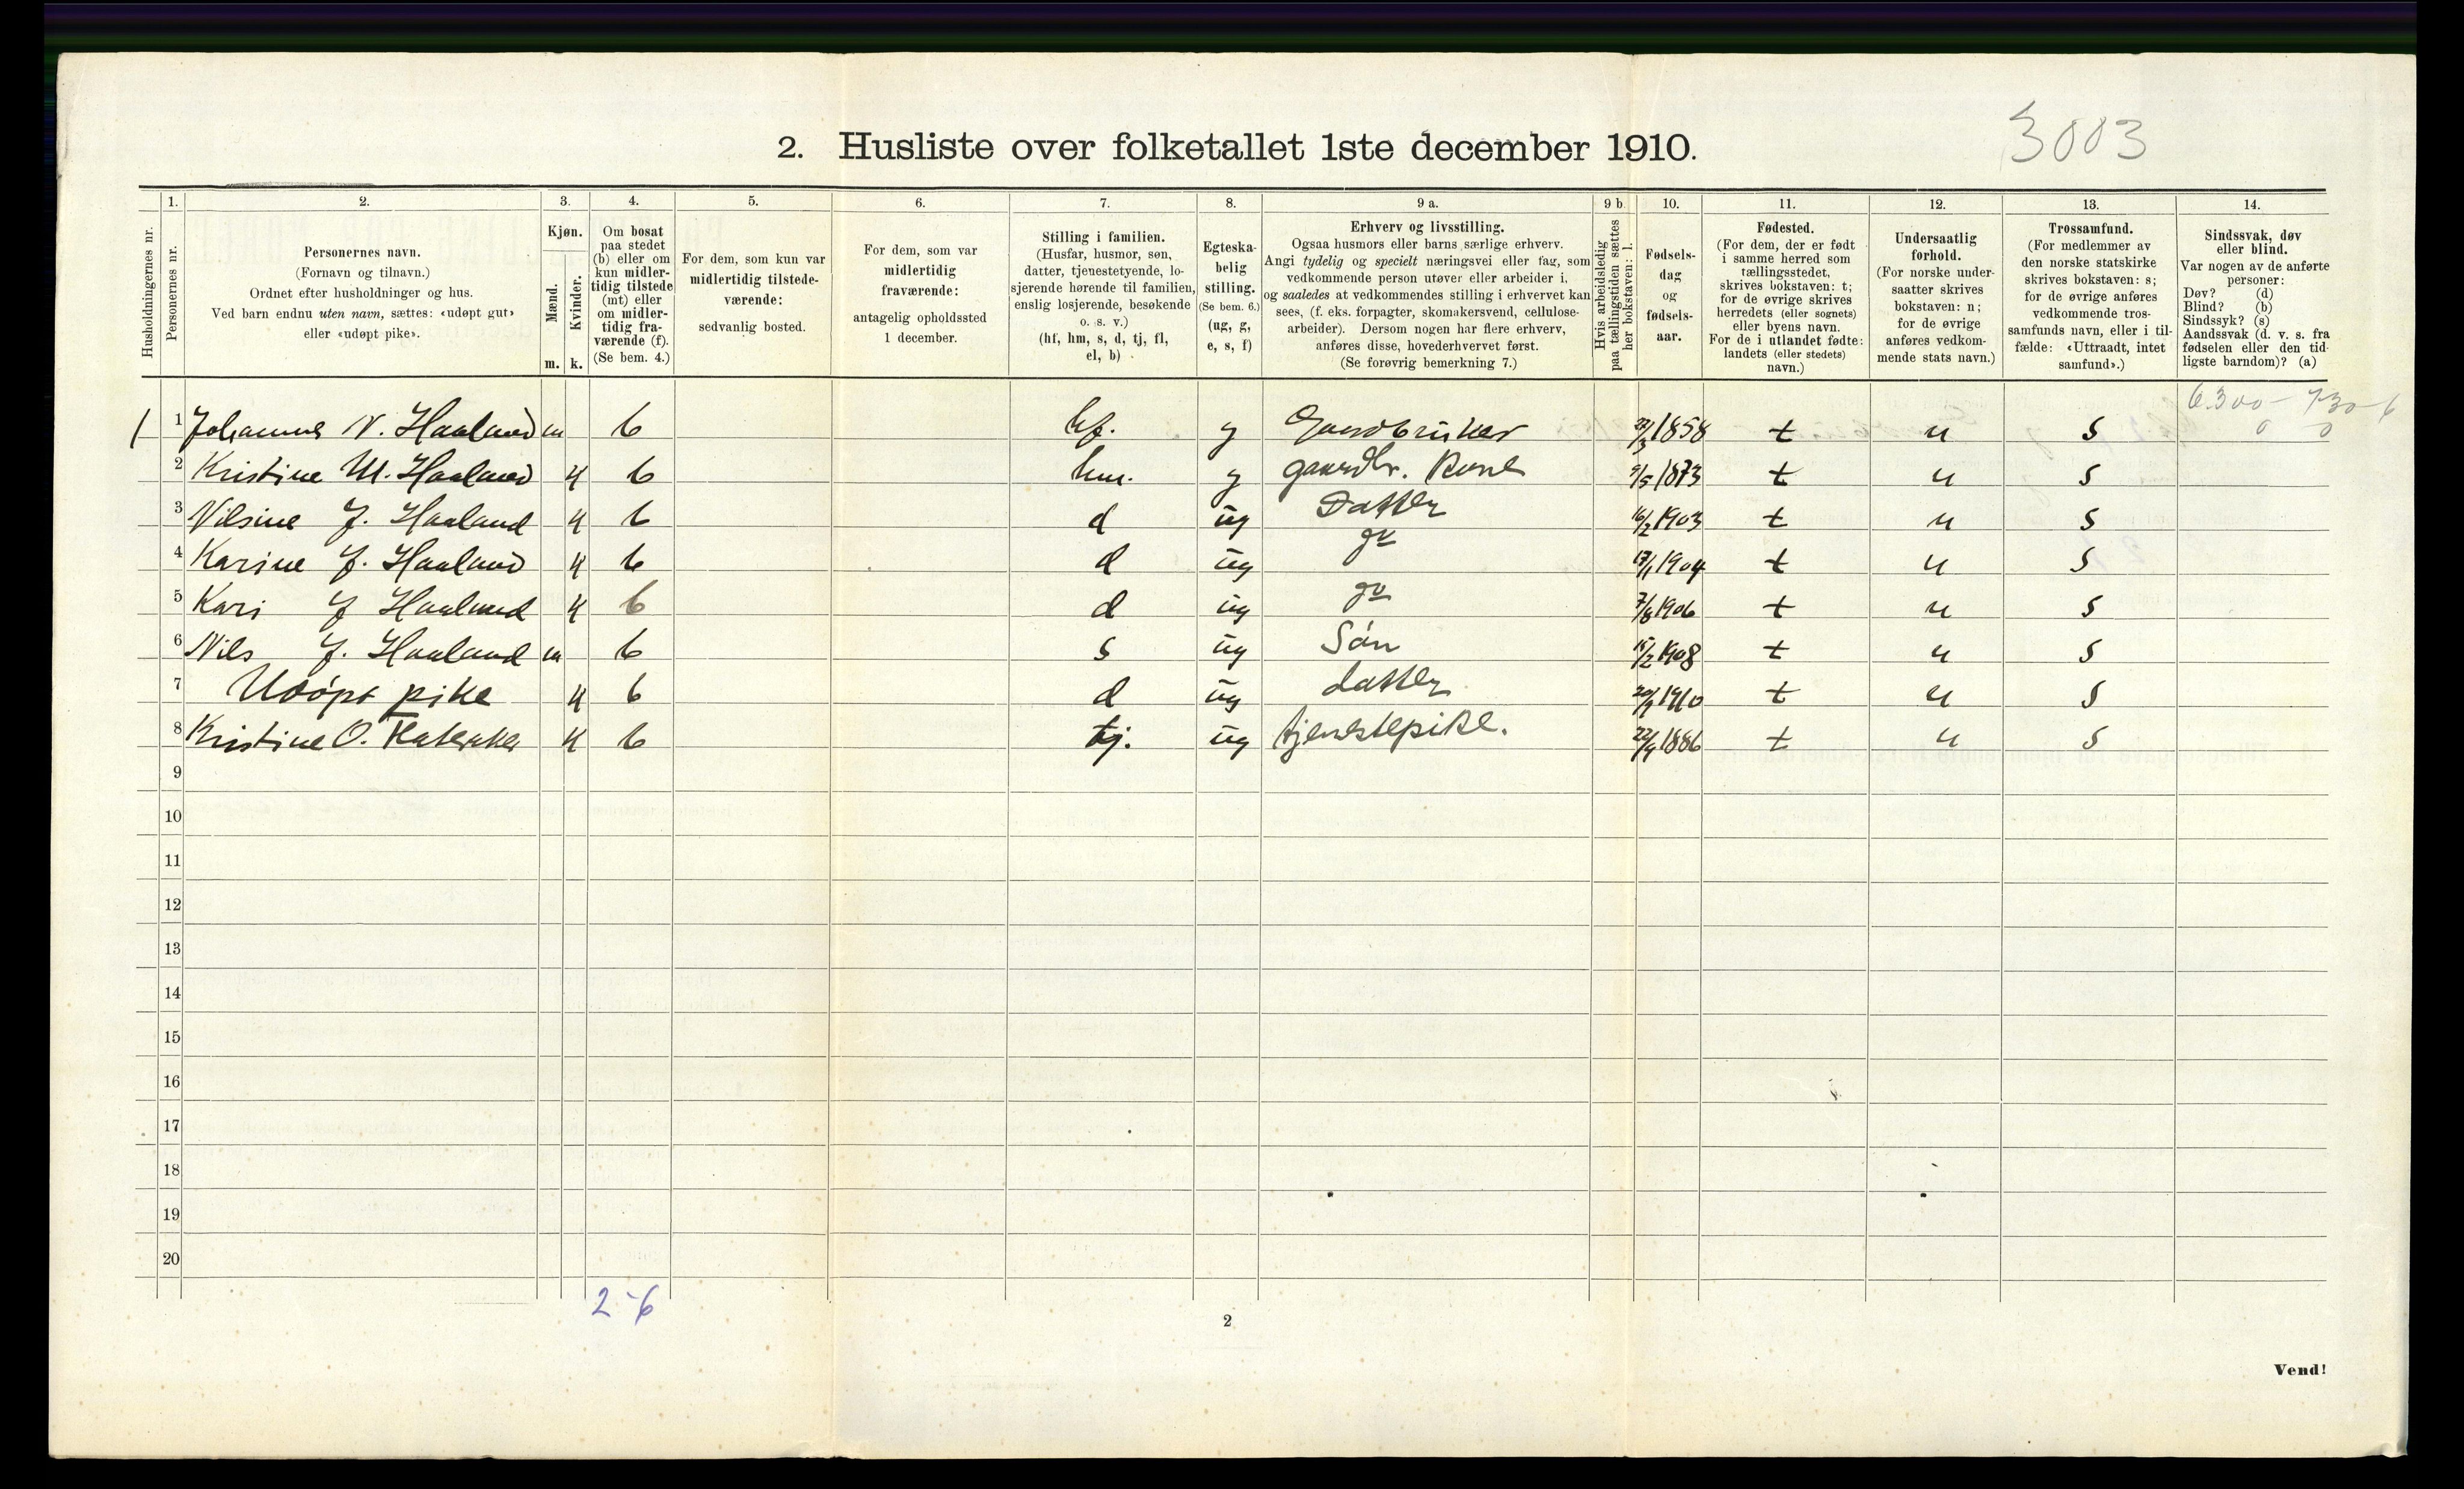 3003
2. Husliste over folketallet 1ste december 1910.
Husholdningernes nr.
1.
Personernes nr.
2.
Personernes navn.
(Fornavn og tilnavn.)
Ordnet efter husholdninger og hus.
Ved barn endnu uten navn, sættes: «udøpt gut»
eller «udøpt pike».
3.
Kjøn.
Mænd.
Kvinder.
m. k.
4.
Om bosat
paa stedet
(b) eller om
kun midler-
tidig tilstede
(mt) eller
om midler-
tidig fra-
værende (f).
(Se bem. 4.)
5.
For dem, som kun var
midlertidig tilstede-
værende:
sedvanlig bosted.
6.
For dem, som var
midlertidig
fraværende:
antagelig opholdssted
1 december.
7.
Stilling i familien.
(Husfar, husmor, søn,
datter, tjenestetyende, lo-
sjerende hørende til familien,
enslig losjerende, besøkende
o. s. v.)
(hf, hm, s, d, tj, fl,
el, b)
8.
Egteska-
belig
stilling.
(Se bem. 6.)
(ug, g,
e, s, f)
9 a.
Erhverv og livsstilling.
Ogsaa husmors eller barns særlige erhverv.
Angi tydelig og specielt næringsvei eller fag, som
vedkommende person utøver eller arbeider i,
og saaledes at vedkommendes stilling i erhvervet kan
sees, (f. eks. forpagter, skomakersvend, cellulose-
arbeider). Dersom nogen har flere erhverv,
anføres disse, hovederhvervet først.
(Se forøvrig bemerkning 7.)
9 b.
Hvis arbeidsledig
paa tællingstiden sættes
her bokstaven: l.
10.
Fødsels-
dag
og
fødsels-
aar.
11.
Fødested.
(For dem, der er født
i samme herred som
tællingsstedet,
skrives bokstaven: t;
for de øvrige skrives
herredets (eller sognets)
eller byens navn.
For de i utlandet fødte:
landets (eller stedets)
navn.)
12.
Undersaatlig
forhold.
(For norske under-
saatter skrives
bokstaven: n;
for de øvrige
anføres vedkom-
mende stats navn.)
13.
Trossamfund.
(For medlemmer av
den norske statskirke
skrives bokstaven: s;
for de øvrige anføres
vedkommende tros-
samfunds navn, eller i til-
fælde: «Uttraadt, intet
samfund».)
14.
Sindssvak, døv
eller blind.
Var nogen av de anførte
personer:
Døv? (d)
Blind? (b)
Sindssyk? (s)
Aandssvak (d. v. s. fra
fødselen eller den tid-
ligste barndom)? (a)
6.300 - 730 - 6
0 0
1 1 Johannes N. Haaland m b hf. g Gaardbruker 1858 t n s
2 Kristine M. Haaland k b hm. g gaardbr. Kone 9/5 1873 t n s
3 Nilsine J. Haaland k b d ug Datter 16/2 1903 t n s
4 Karine J. Haaland k b d ug do 17/1 1904 t n s
5 Kari J Haaland k b d ug do 7/8 1906 t n s
6 Nils J. Haaland m b s ug Sön 15/2 1908 t n s
7 Udöpt pike k b d ug datter 1910 t n s
8 Kristine O. k b tj. ug tjenestepike. 1886 t n s
9
10
11
12
13
14
15
16
17
18
19
20
2-6
2
Vend!